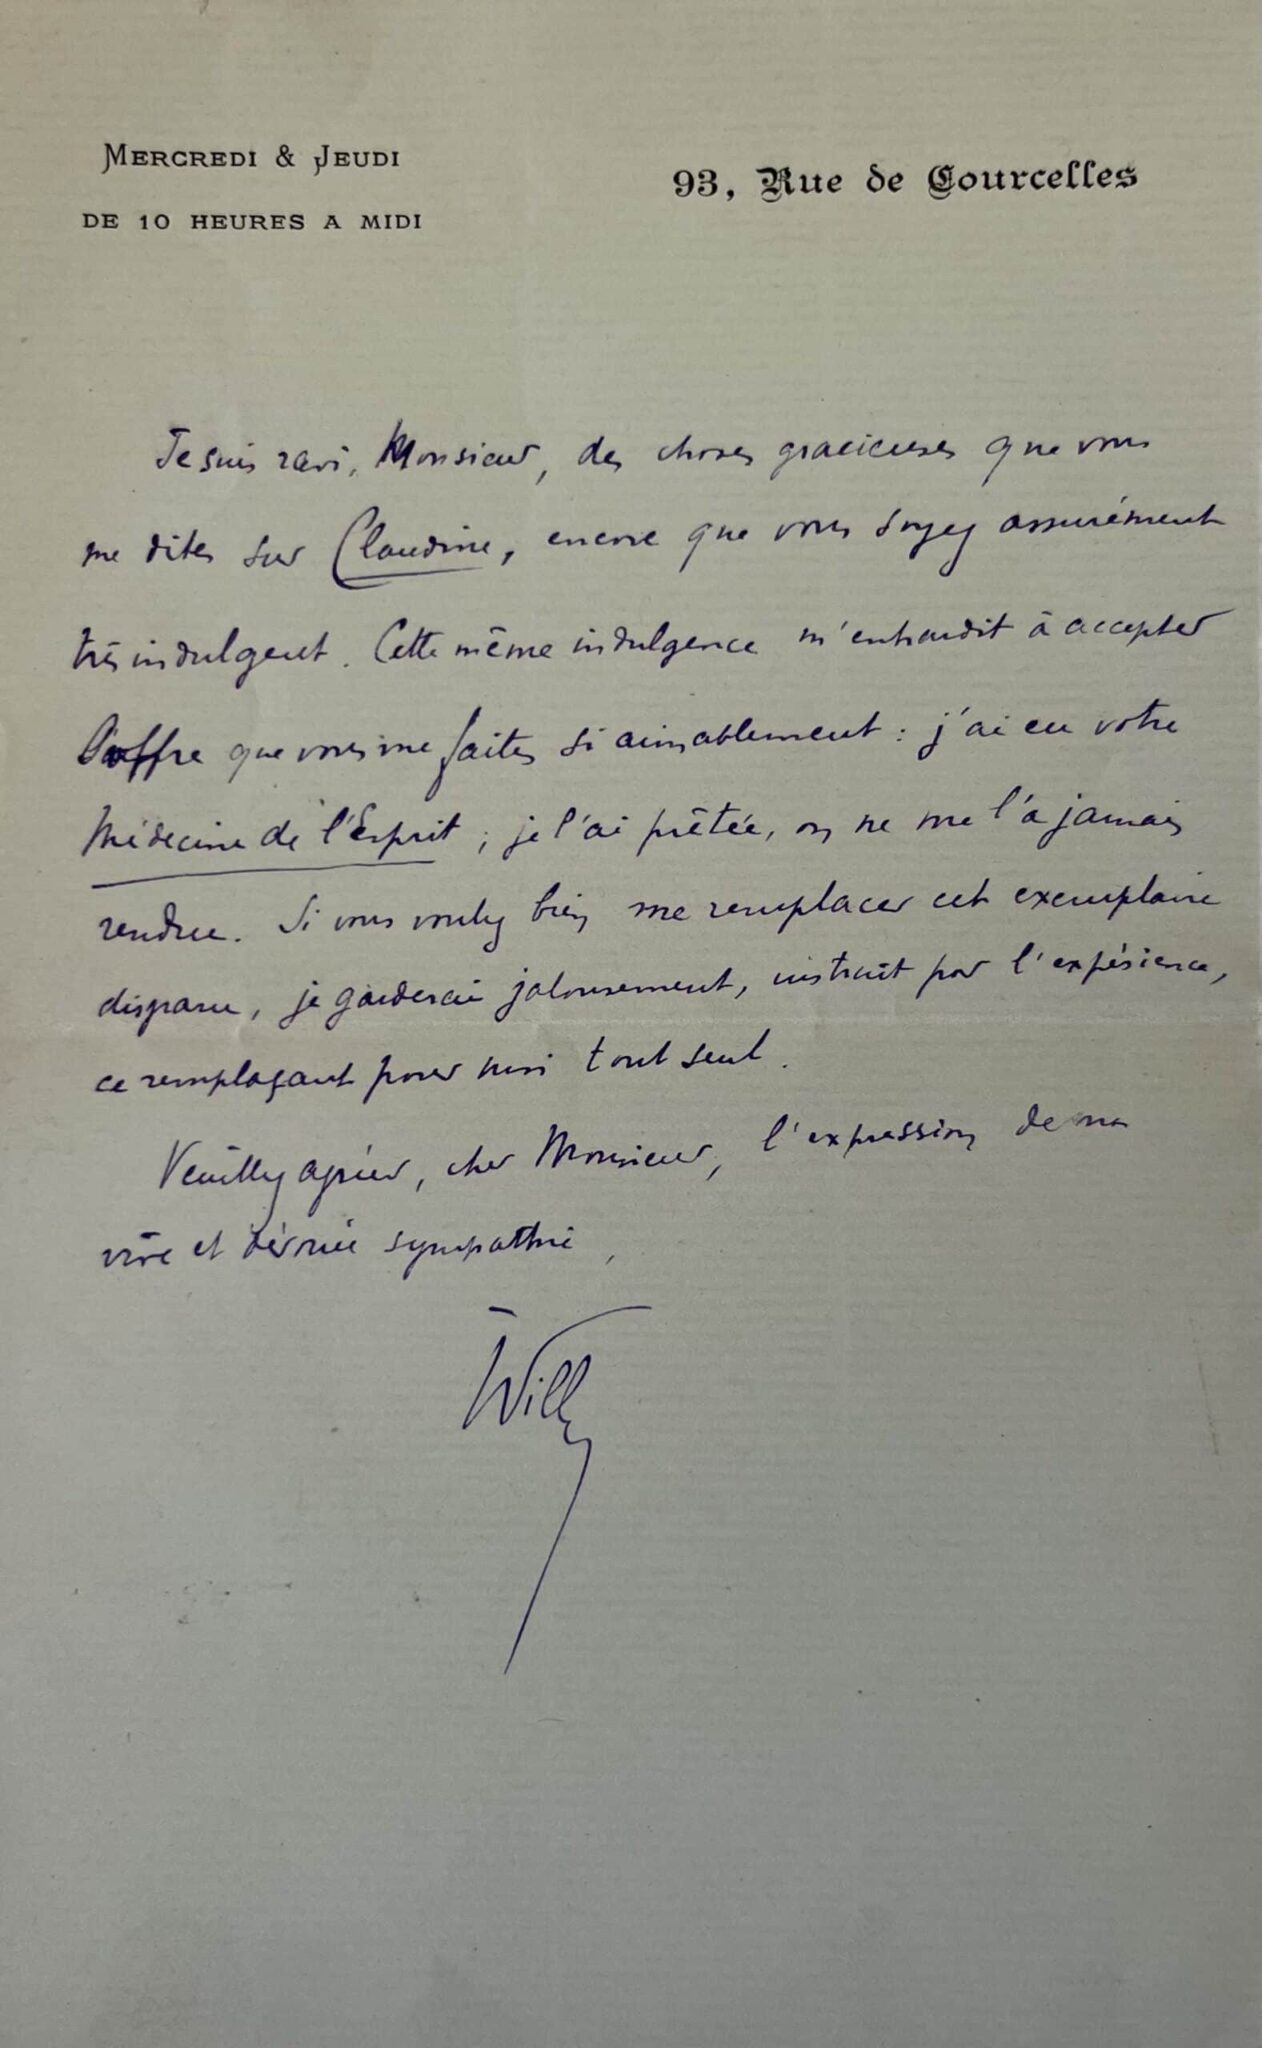 MERCREDI & JEUDI
DE 10 HEURES A MIDI
93, Rue de Courcelles
Je suis ravi, Monsieur, des choses gracieuses que vous
me dites sur Claudine, encore que vous soyez assurément
très indulgent. Cette même indulgence m'enhardit à accepter
l'offre que vous me faites si aimablement : j'ai eu votre
Médecine de l'Esprit ; je l'ai prêtée, on ne me l'a jamais
rendue. Si vous voulez bien me remplacer cet exemplaire
disparu, je garderai jalousement, instruit par l'expérience,
ce remplaçant pour moi tout seul.
Veuillez agréer, cher Monsieur, l'expression de ma
vive et dévouée sympathie,
Willy